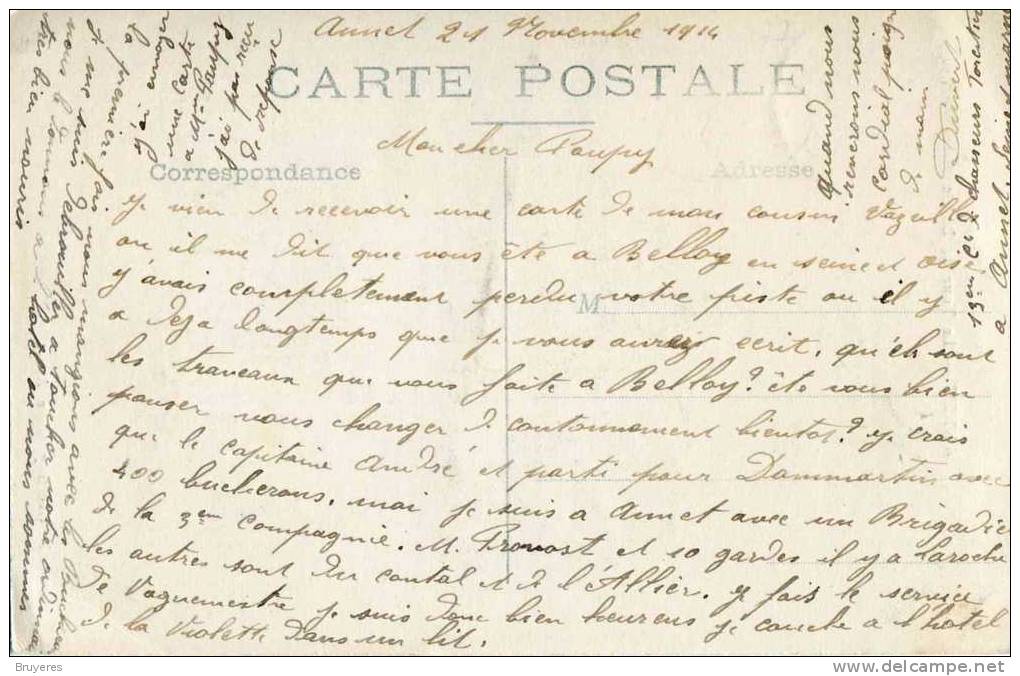 Annet 21 Novembre 1914
CARTE POSTALE
Mon cher Poupy
Correspondance
Adresse
Je vien de recevoir une carte de mon cousin Vazeille
ou il me dit que vous ète a Belloy en seine et oise
j'avais completement perdu votre piste ou il y
M
a deja longtemps que je vous aurez ecrit, qu'els sont
les traveaux que vous faite a Belloy? ète vous bien
panser vous changer de cantonnement bientot? je crois
que le capitaine André et parti pour Dammartin avec
400 bucherons, mai je suis a Annet avec un Brigadier
de la 3em Compagnie. M. Provost et 10 gardes il y a Laroche
les autres sont du cantal et de l'Allier. je fais le service
de Vaguemestre je suis donc bien heureus je couche a l'hotel
de la Violette dans un lit.
la premiere fois nous mangions avec les Bucherons
je me suis debrouiller a toucher notre ordinaire
nous le donnons a l'hotel ou nous sommes
tres bien nourris
une carte
a
Poupuy
j'ai pas reçu
de reponse
Quand nous
reverons nous
cordial poigne
de main
13em Cie de chasseurs forestiers
a Annet, Seine et marne
Bruyeres
http://www.delcampe.net